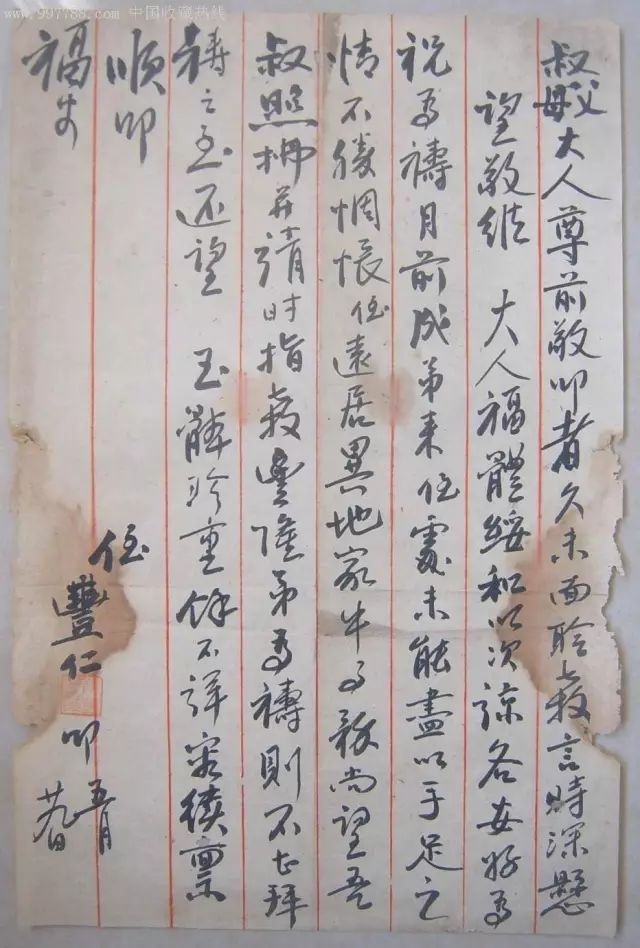 www.997788.com 中国收藏热线
叔父母大人尊前敬叩者久未面聆教言時深懸
望敬維 大人福體綏和以次諒各安好為
祝為禱月前成弟来侄處未能盡以手足之
情不勝惆悵侄遠居異地家牛事務尚望吾
叔照拂并請时指教豐隆弟為禱則不甚拜
禱之至还望 玉體珍重餘不详容續禀
順叩
福安
侄豐仁叩 五月